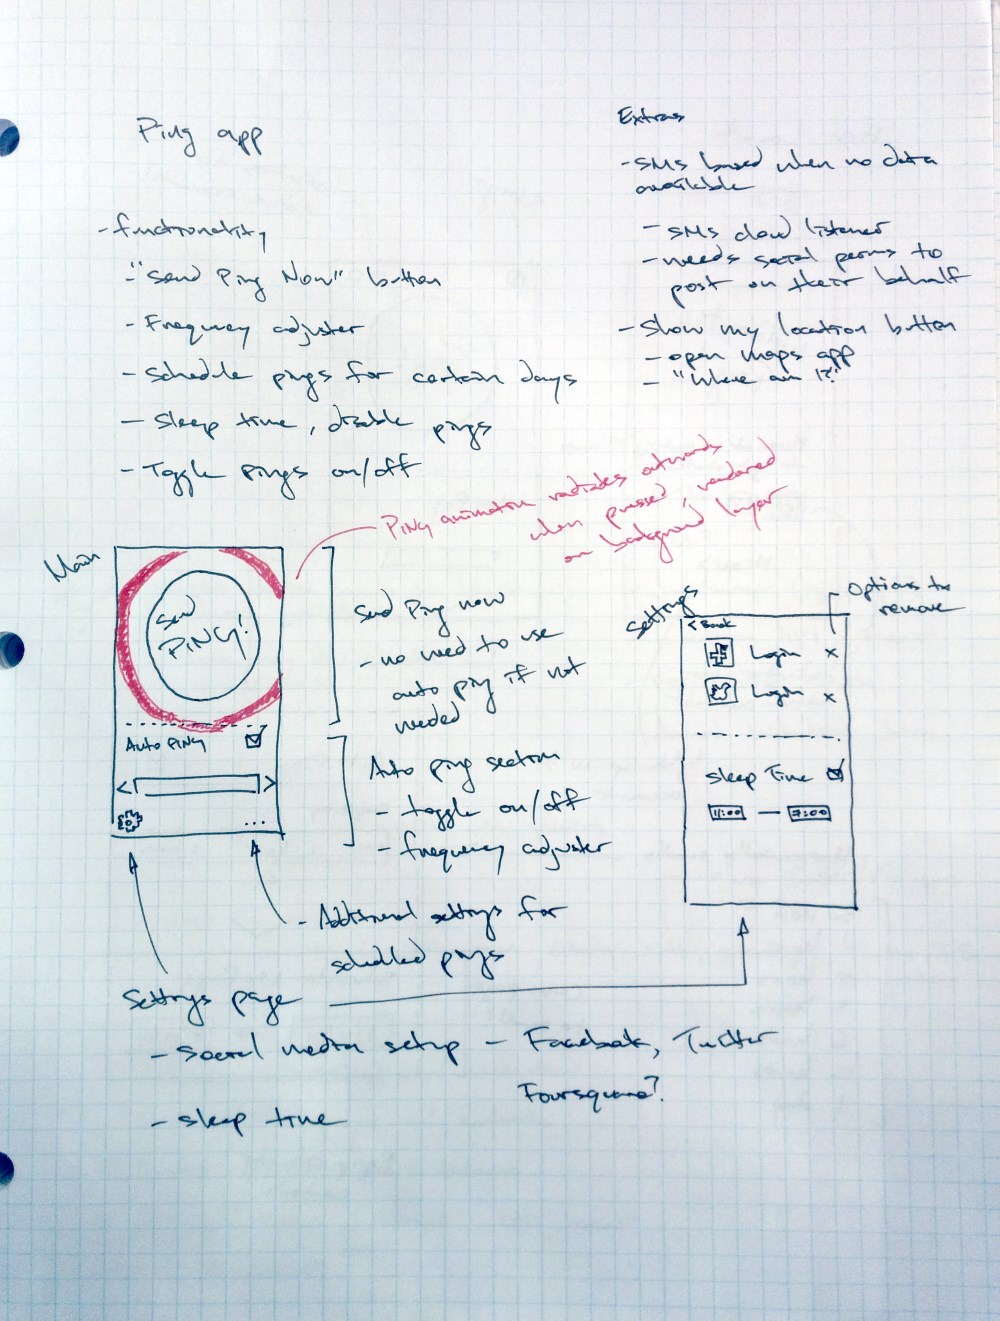 Ping app
- functionality
- "Send Ping Now" button
- Frequency adjuster
- Schedule pings for certain days
- Sleep time, disable pings
- Toggle pings on/off
Extras
- SMS based when no data
available
- SMS cloud listener
- needs social perms to
post on their behalf
- Show my location button
- open maps app
- "Where am I?"
PiNg animation radiates outwards
when pressed, rendered
on background layer
Main
Send
PiNG!
Auto PiNg
< >
...
Send Ping now
- no need to use
auto ping if not
needed
Auto ping section
- toggle on/off
- frequency adjuster
- Additional settings for
scheduled pings
Settings
Options to
remove
< Back
Login x
Login x
Sleep Time
11:00 — 7:00
Settings page
- Social media setup - Facebook, Twitter
Foursquare?
- sleep time